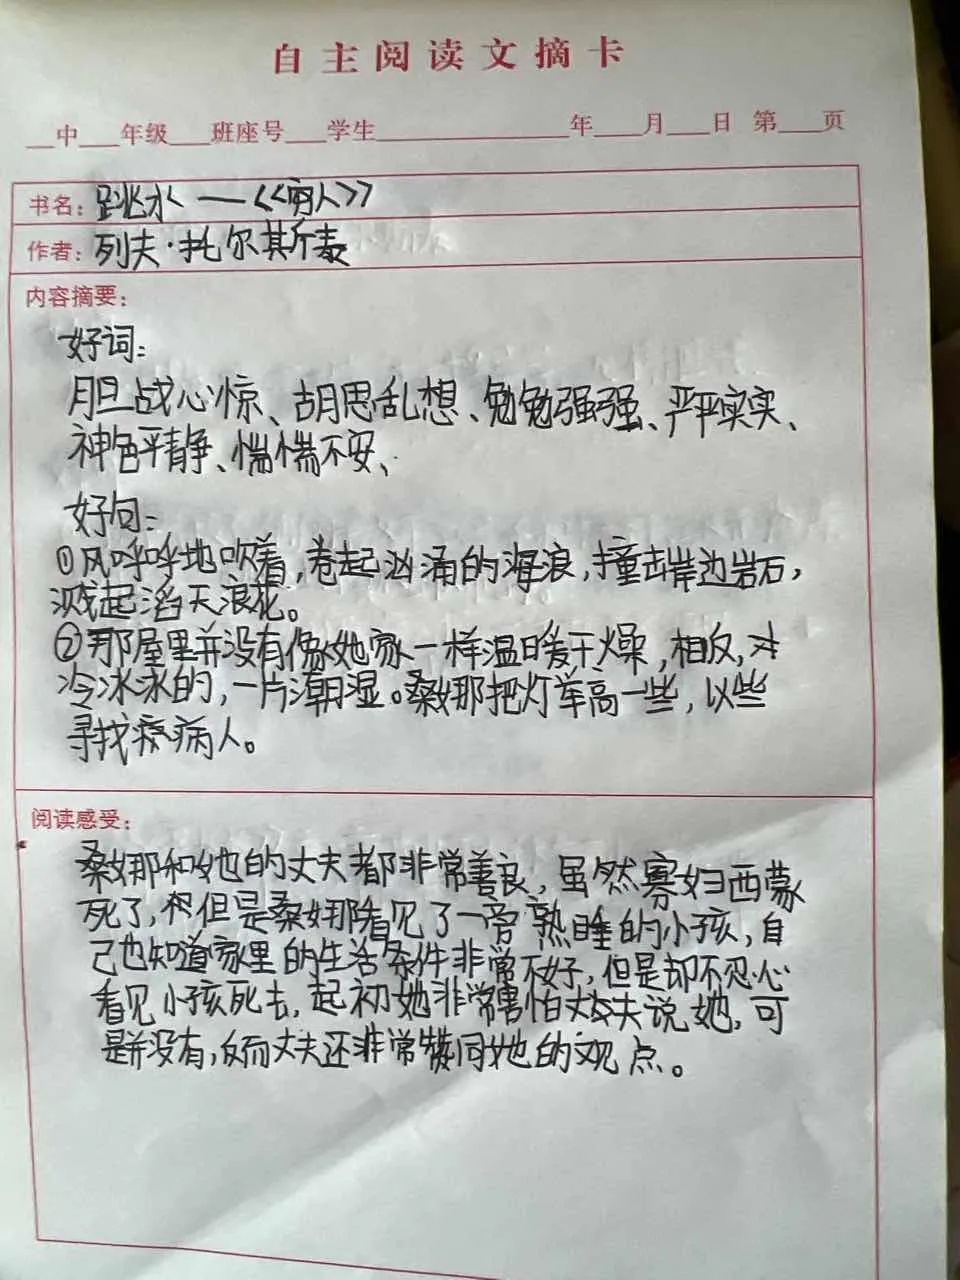 自主阅读文摘卡
__中___年级___班座号___学生______________年___月___日 第___页
书名：跳水——《穷人》
作者：列夫·托尔斯泰
内容摘要：
好词：
胆战心惊、胡思乱想、勉勉强强、严严实实、
神色平静、惴惴不安、
好句：
①风呼呼地吹着，卷起汹涌的海浪，撞击岸边岩石，
溅起滔天浪花。
②那屋里并没有像她家一样温暖干燥，相反，冰
冷冰冰的，一片潮湿。桑娜把灯举高一些，以些
寻找病人。
阅读感受：
桑娜和她的丈夫都非常善良，虽然寡妇西蒙
死了，但是桑娜看见了一旁熟睡的小孩，自
己也知道家里的生活条件非常不好，但是却不忍心
看见小孩死去，起初她非常害怕丈夫说她，可
是并没有，反而丈夫还非常赞同她的观点。